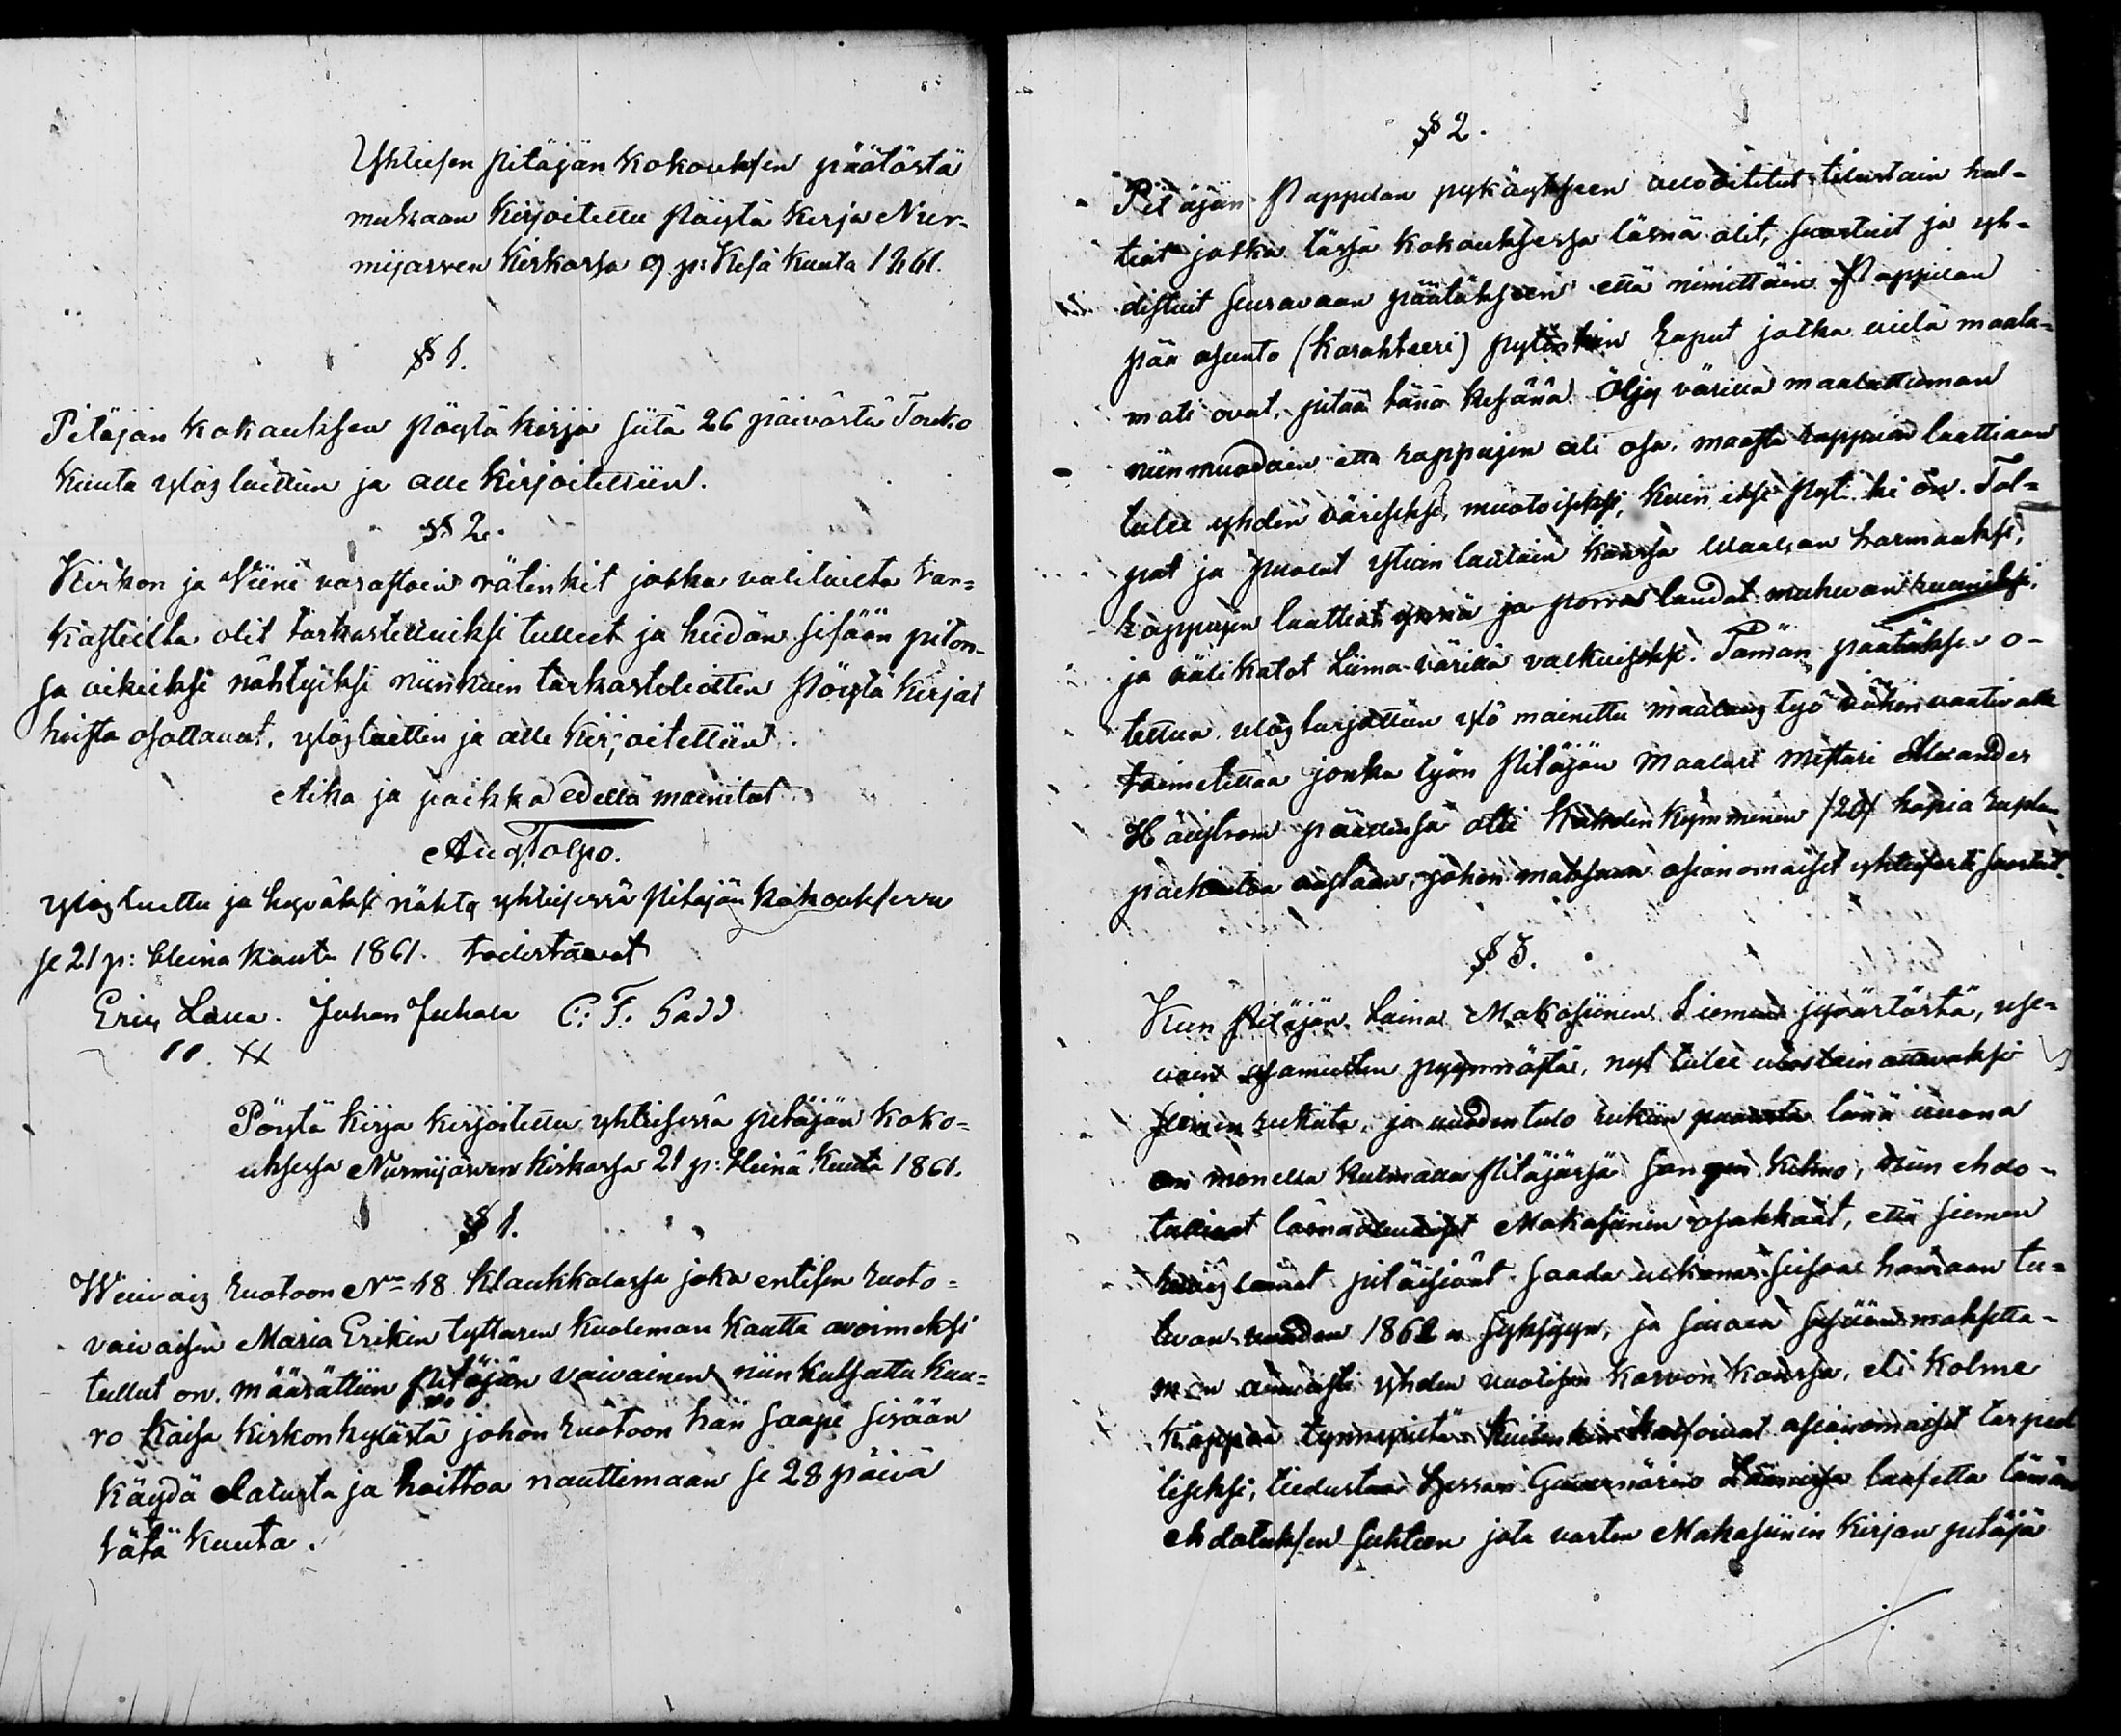 Yhteisen Pitäjän kokouksen päätöstä
mukaan kirjoitettu Pöytä kirja Nur-
mijärven Kirkossa 9 p: Kesä kuuta 1861.
§ 1.
Pitäjän kokouksen Pöytä kirja siitä 26 päivästä Touko
kuuta ylösluettiin ja alle kirjoitettiin.
§ 2.
Kirkon ja Viini varastoin rätinkit jotka valituilta tar-
kasteilta olit tarkastetuiksi tulleet ja heidän sisään piton-
sa oikieksi nähtyiksi niinkuin tarkastoleitten Pöytä kirjat
heistä osottavat, ylösluettiin ja alle kirjoitettiin.
Aika ja paikka edellä mainitut
Aug Talpo.
ylösluettu ja hyväksi nähty yhteisessä Pitäjän kokouksessa
se 21 p: Heinä kuuta 1861. todistavat
Eric Juhan Juhala C. F.
Pöytä kirja kirjoitettu yhteisessä pitäjän koko-
uksessa Nurmijärven kirkossa 21 p: Heinä kuuta 1861.
§ 1.
Waivais ruotoon No 18 Klaukkalassa joka entisen ruoto-
vaivaisen Maria Erikin tyttären kuoleman kautta avoimeksi
tullut on, määrättiin Pitäjän vaivainen niin kutsuttu Kuu-
ro Kaisa Kirkonkylästä johon ruotoon hän saapi sisään
käydä elatusta ja hoittoa nauttimaan se 28 päivä
tätä kuuta.
§ 2.
Pitäjän Pappilan pykäykseen velvoitetut tilustain hal-
tiat jotka tässä kokouksessa läsnä olit, suostuit ja yh-
distuit seuravaan päätökseen että nimittäin Pappilan
pää asunto (karahteeri) raput jotka vielä maala-
mati ovat, pitää tänä kesänä Öljy värillä maalattaman
niinmuodoin että rappujen ali osa, maasta rappuin laattiaan
tulee yhden väriseksi, muotoiseksi, kuin itse on. Tol-
pat ja puolat ylian lautain kanssa vaalean harmaaksi,
rappujen laattiat ynnä ja porras laudat mukuan ruuniksi,
ja välikatot Liima-värillä valkuiseksi. Tämän päätöksen o-
tettua, ulos tarjottiin ylö mainittu maalaus työ vähin vaativalle
toimitettaa jonka työn Pitäjän Maalari Mestari Alexander
Hägström päällensä otti Kahden kymmenen /20/ hopia ruplan
palkintoa vastaan, johon maksuun asianomaiset yhteisesti suostuit.
§ 3.
Kun Pitäjän Laina Makasiinin Siemen jyvästöstä, use-
vain pyynnöstä, nyt tulee ulos lainattavaksi
siemen rukiita, ja vuoden tulo rukiin tänä vuona
on monella kulmalla Pitäjässä sangen huono, niin ehdo-
tteliwat läsnäolevaiset Makasiinin osakkaat, että siemen
pitäisivät saada haman tu-
levan vuoden 1862 n syksyyn, ja sisään maksetta-
man ainoasti yhden vuotisen kasvon kanssa, eli kolme
Kappaa tynnyriltä. Kuitenkin katsoivat asianomaiset tarpeel
liseksi, tiedustaa Herran Guvernörin tämän
ehdotuksen suhteen jota varten Makasiinin kirjan pitäjä